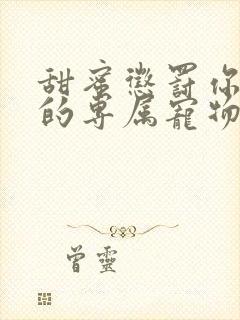 甜蜜懲罰你
的専属寵物
曾靈